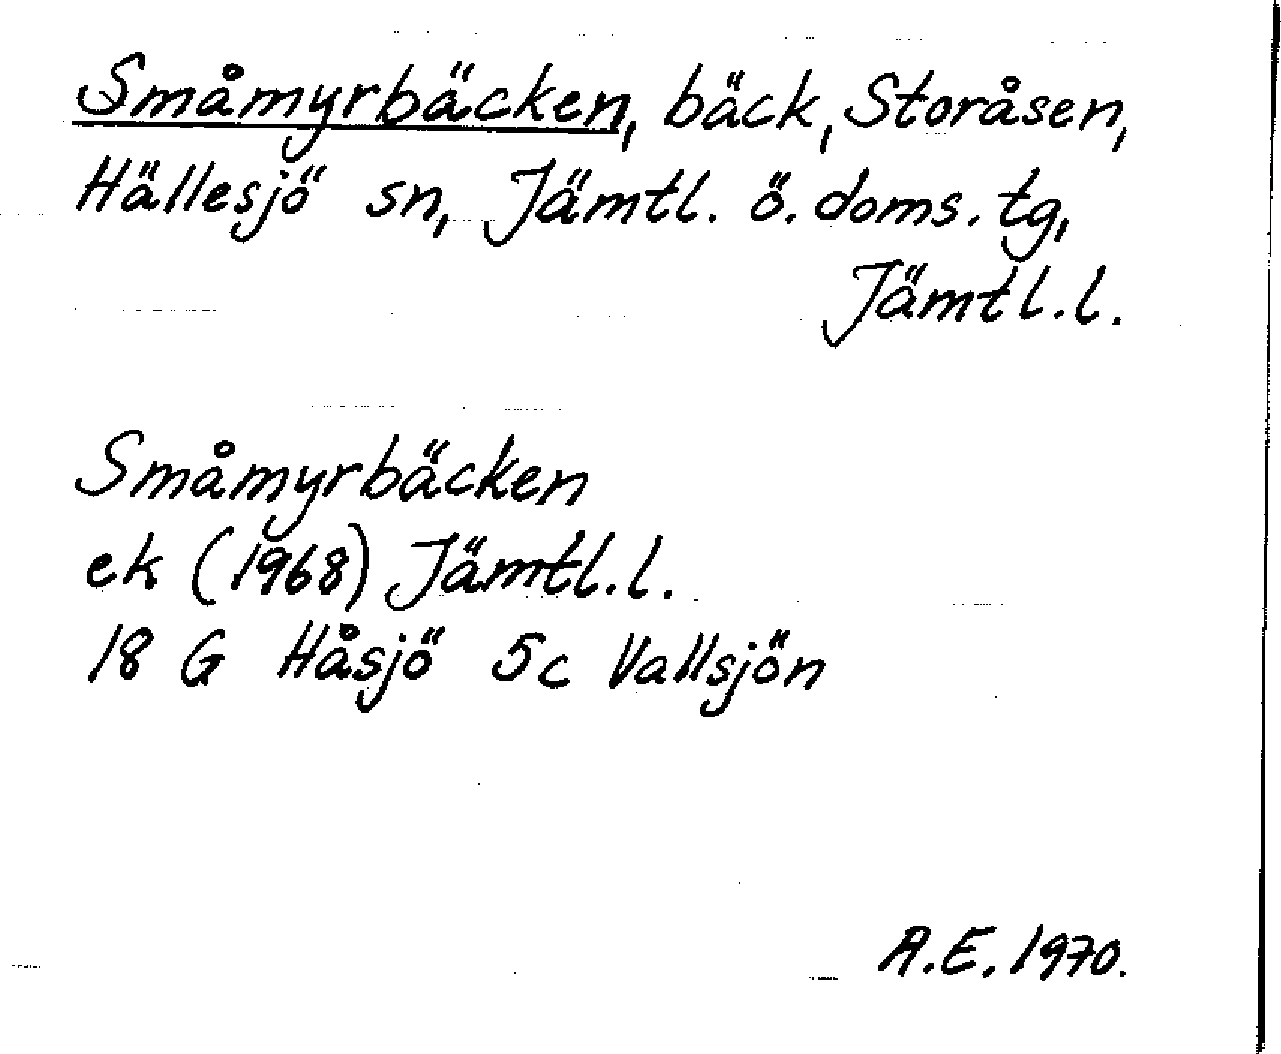 Småmyrbäcken, bäck, Storåsen,
Hällesjö sn, Jämtl. ö. doms. tg,
Jämtl.l.
Småmyrbäcken
ek (1968) Jämtl.l.
18 G Håsjö 5c Vallsjön
A.E. 1970.